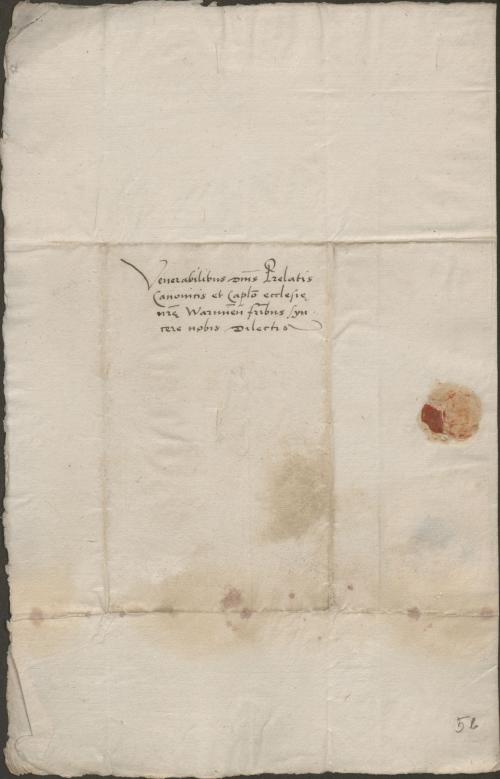 Venerabilibus Dnis Prelatis
Canonicis et Caplo ecclesie
nre Warmien fribus syn
cere nobis Dilectis
56